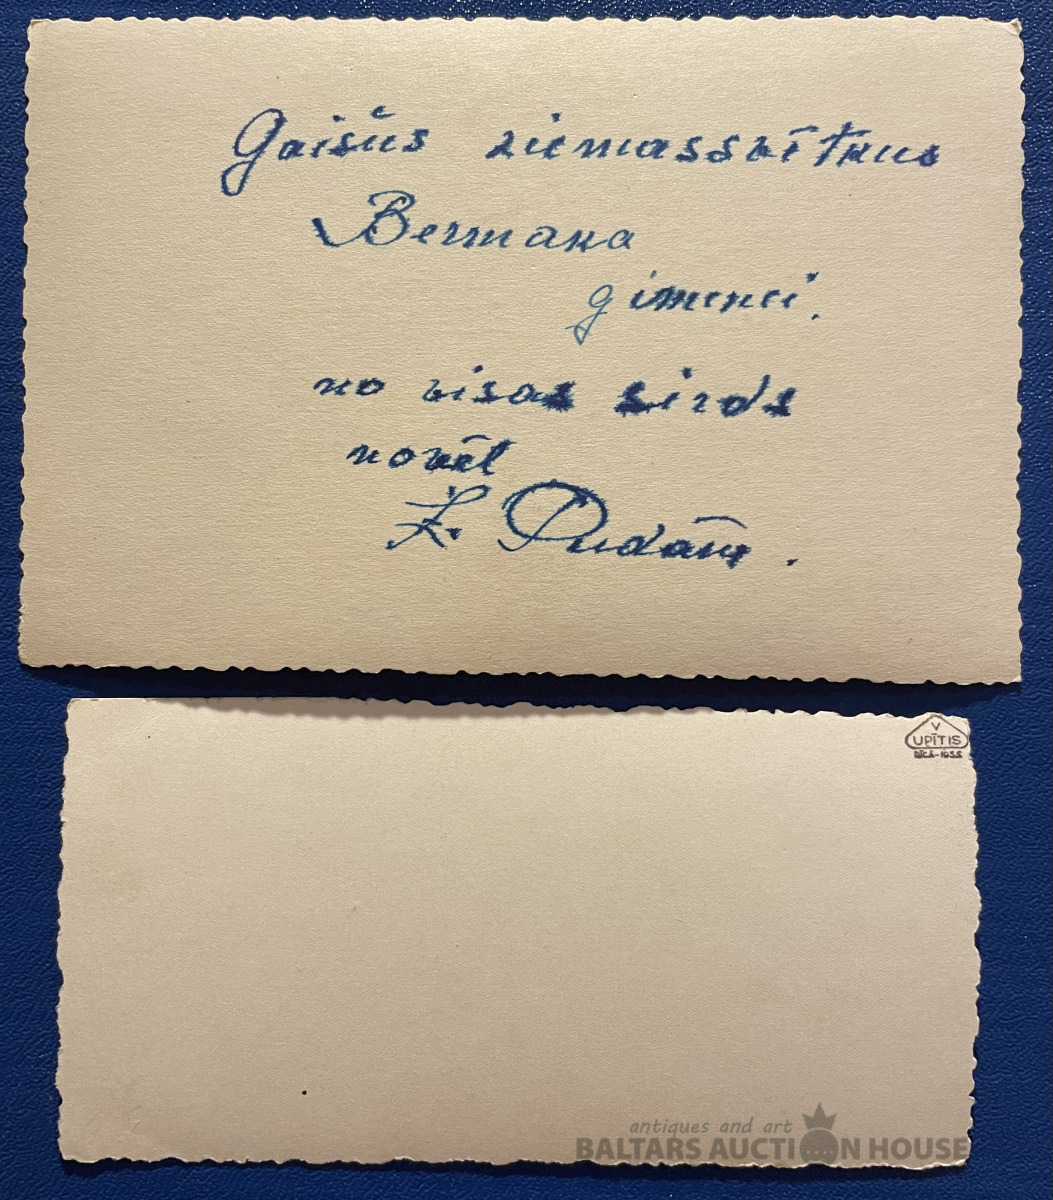 Gaišus ziemassvētkus
Bermaka
gimenei.
no visas sirds
novēl
Ž. Pudāns.
V
UPĪTIS
RĪGĀ-1955
antiques and art
BALTARS AUCTION HOUSE